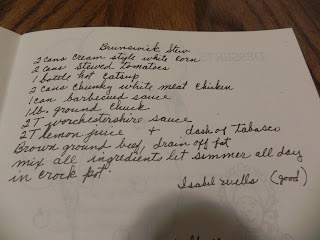 Brunswick Stew
2 cans cream style white corn
2 cans stewed tomatoes
1 bottle hot catsup
2 cans chunky white meat chicken
1 can barbecued sauce
1 lb. ground chuck
2 T worchestershire sauce
2T lemon juice + dash of tabasco
Brown ground beef, drain off fat
mix all ingredients let simmer all day
in crock pot.
Isabel (good)
DESSERTS